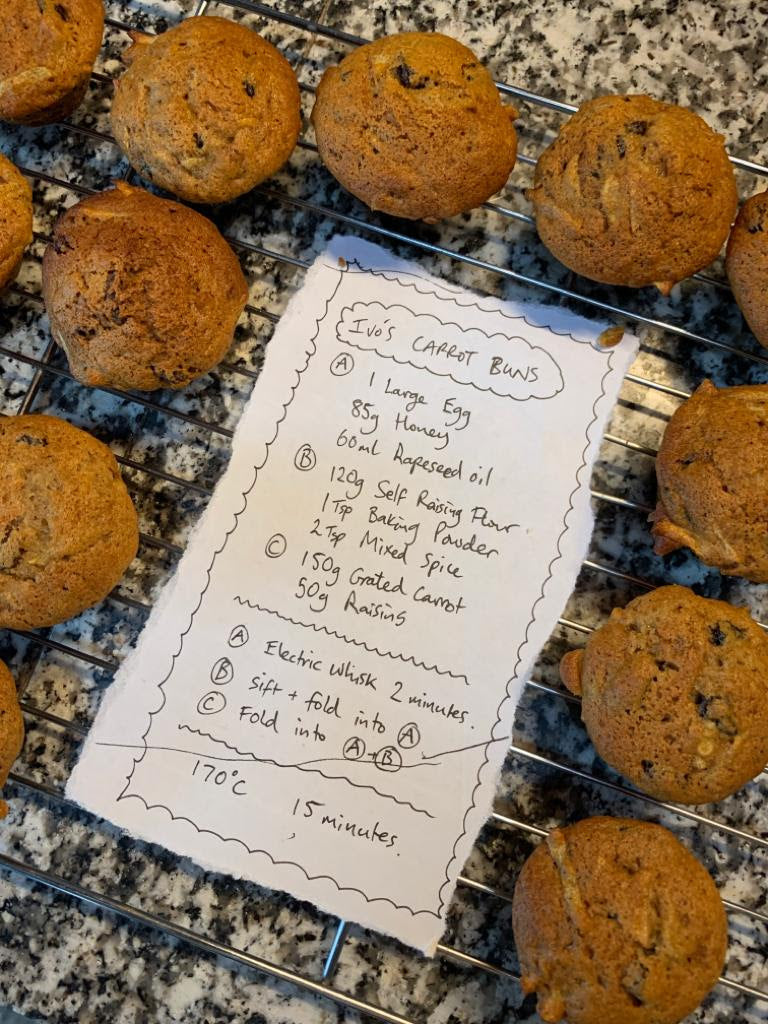 Ivo's CARROT BUNS
Ⓐ 1 Large Egg
85g Honey
60ml Rapeseed oil
Ⓑ 120g Self Raising Flour
1 Tsp Baking Powder
2 Tsp Mixed Spice
Ⓒ 150g Grated Carrot
50g Raisins
Ⓐ Electric Whisk 2 minutes.
Ⓑ sift + fold into Ⓐ
Ⓒ Fold into Ⓐ+Ⓑ
170°C 15 minutes.